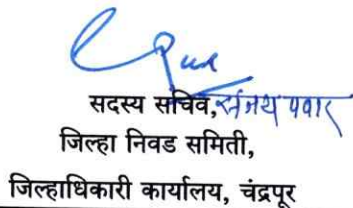 सदस्य सचिव, संजय पवार
जिल्हा निवड समिती,
जिल्हाधिकारी कार्यालय, चंद्रपूर